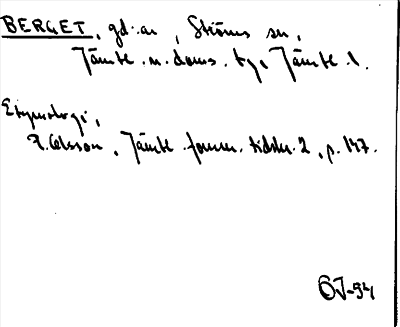 BERGET, gd:ar, Ströms sn,
Jämtl. n. doms. tg, Jämtl. l.
Etymologi,
R. Olsson, Jämtl. fornm. tidskr. 2, p. 147.
OJ-54